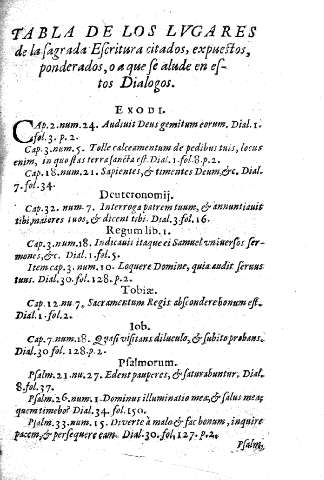 TABLA DE LOS LVGARES
de la sagrada Escritura citados, expuestos,
ponderados, o a que se alude en es-
tos Dialogos.
EXODI.
CAp. 2. num. 24. Audiuit Deus gemitum eorum. Dial. 1.
fol. 3. p. 2.
Cap. 3. num. 5. Tolle calceamentum de pedibus tuis, locus
enim, in quo stas terra sancta est. Dial. 1. fol. 8. p. 2.
Cap. 18. num. 21. Sapientes, & timentes Deum, &c. Dial.
7. fol. 34.
Deuteronomij.
Cap. 32. num. 7. Interroga patrem tuum, & annuntiauit
tibi, maiores tuos, & dicent tibi. Dial. 3. fol. 16.
Regum lib. 1.
Cap. 3. num. 18. Indicauit itaque ei Samuel vniuersos ser-
mones, &c. Dial. 1. fol. 5.
Item cap. 3. num. 10. Loquere Domine, quia audit seruus
tuus. Dial. 30. fol. 128. p. 2.
Tobiæ.
Cap. 12. nu. 7. Sacramentum Regis abscondere bonum est.
Dial. 1. fol. 2.
Iob.
Cap. 7. num. 18. Quasi visitans diluculo, & subito probans.
Dial. 30 fol. 128. p. 2.
Psalmorum.
Psalm. 21. nu. 27. Edent pauperes, & saturabuntur. Dial.
8. fol. 37.
Psalm. 26. num. 1. Dominus illuminatio mea, & salus mea,
quem timebo? Dial. 34. fol. 150.
Psalm. 33. num. 15. Diverte à malo & fac bonum, inquire
pacem, & persequere eam. Dial. 30. fol. 127. p. 2.
Psalm.